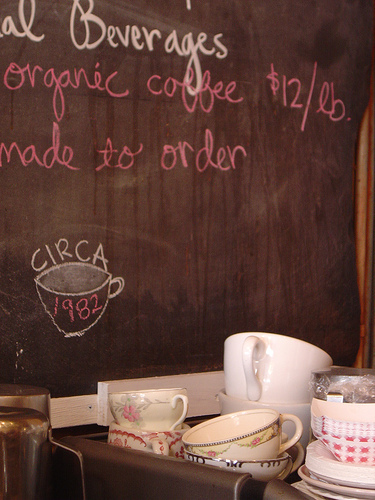 al Beverages
organic coffee $12/lb.
made to order
CIRCA
1982